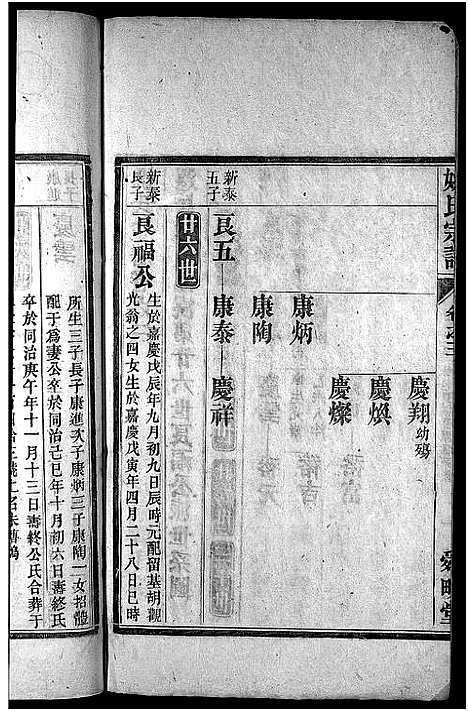 姚氏宗譜
卷之三
舜畊堂
慶翔幼殤
康炳
慶煥
慶燦
康陶
新泰五子
良五
康泰
慶祥
廿六世
新泰長子
良福公
生於嘉慶戊辰年九月初九日辰時元配留基胡觀
光翁之四女生於嘉慶戊寅年四月二十八日巳時
所生三子長子康進次子康炳三子康陶一女招體
配于為妻公卒於同治己巳年十月初六日壽終氏
卒於同治庚午年十一月十三日壽終公氏合葬于